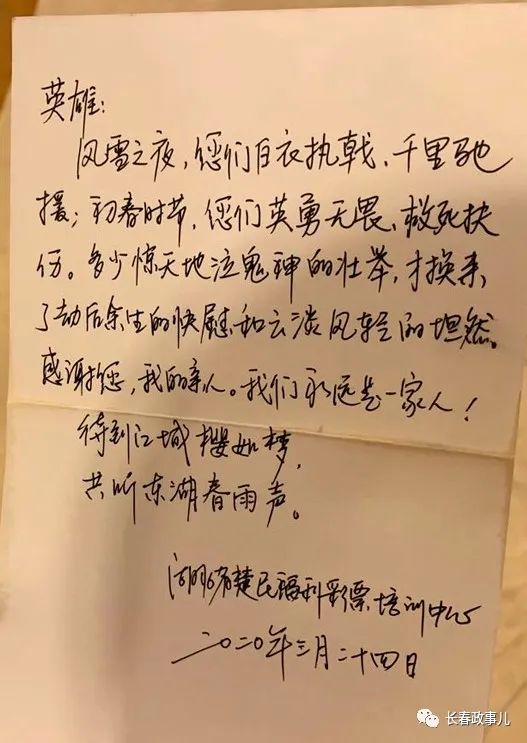 英雄：
风雪之夜，您们白衣执戟，千里驰
援；初春时节，您们英勇无畏，救死扶
伤。多少惊天地泣鬼神的壮举，才换来
了劫后余生的快慰和云淡风轻的坦然。
感谢您，我的亲人。我们永远是一家人！
待到江城樱如梦，
共听东湖春雨声。
湖北省楚民福利彩票培训中心
二〇二〇年三月二十四日
长春政事儿